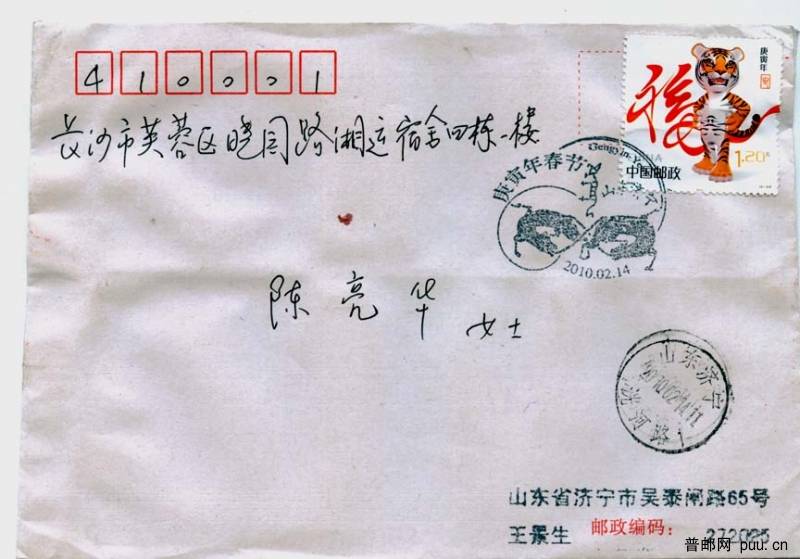 410001
庚寅年
福
1.20元
中国邮政
长沙市芙蓉区晓园路湘运宿舍四栋一楼
庚寅年春节
山东济宁
2010.02.14
陈亮华 女士
山东济宁
2010.02.14.11
洸河路1
山东省济宁市吴泰闸路65号
王景生 邮政编码: 272085
普邮网 puu.cn